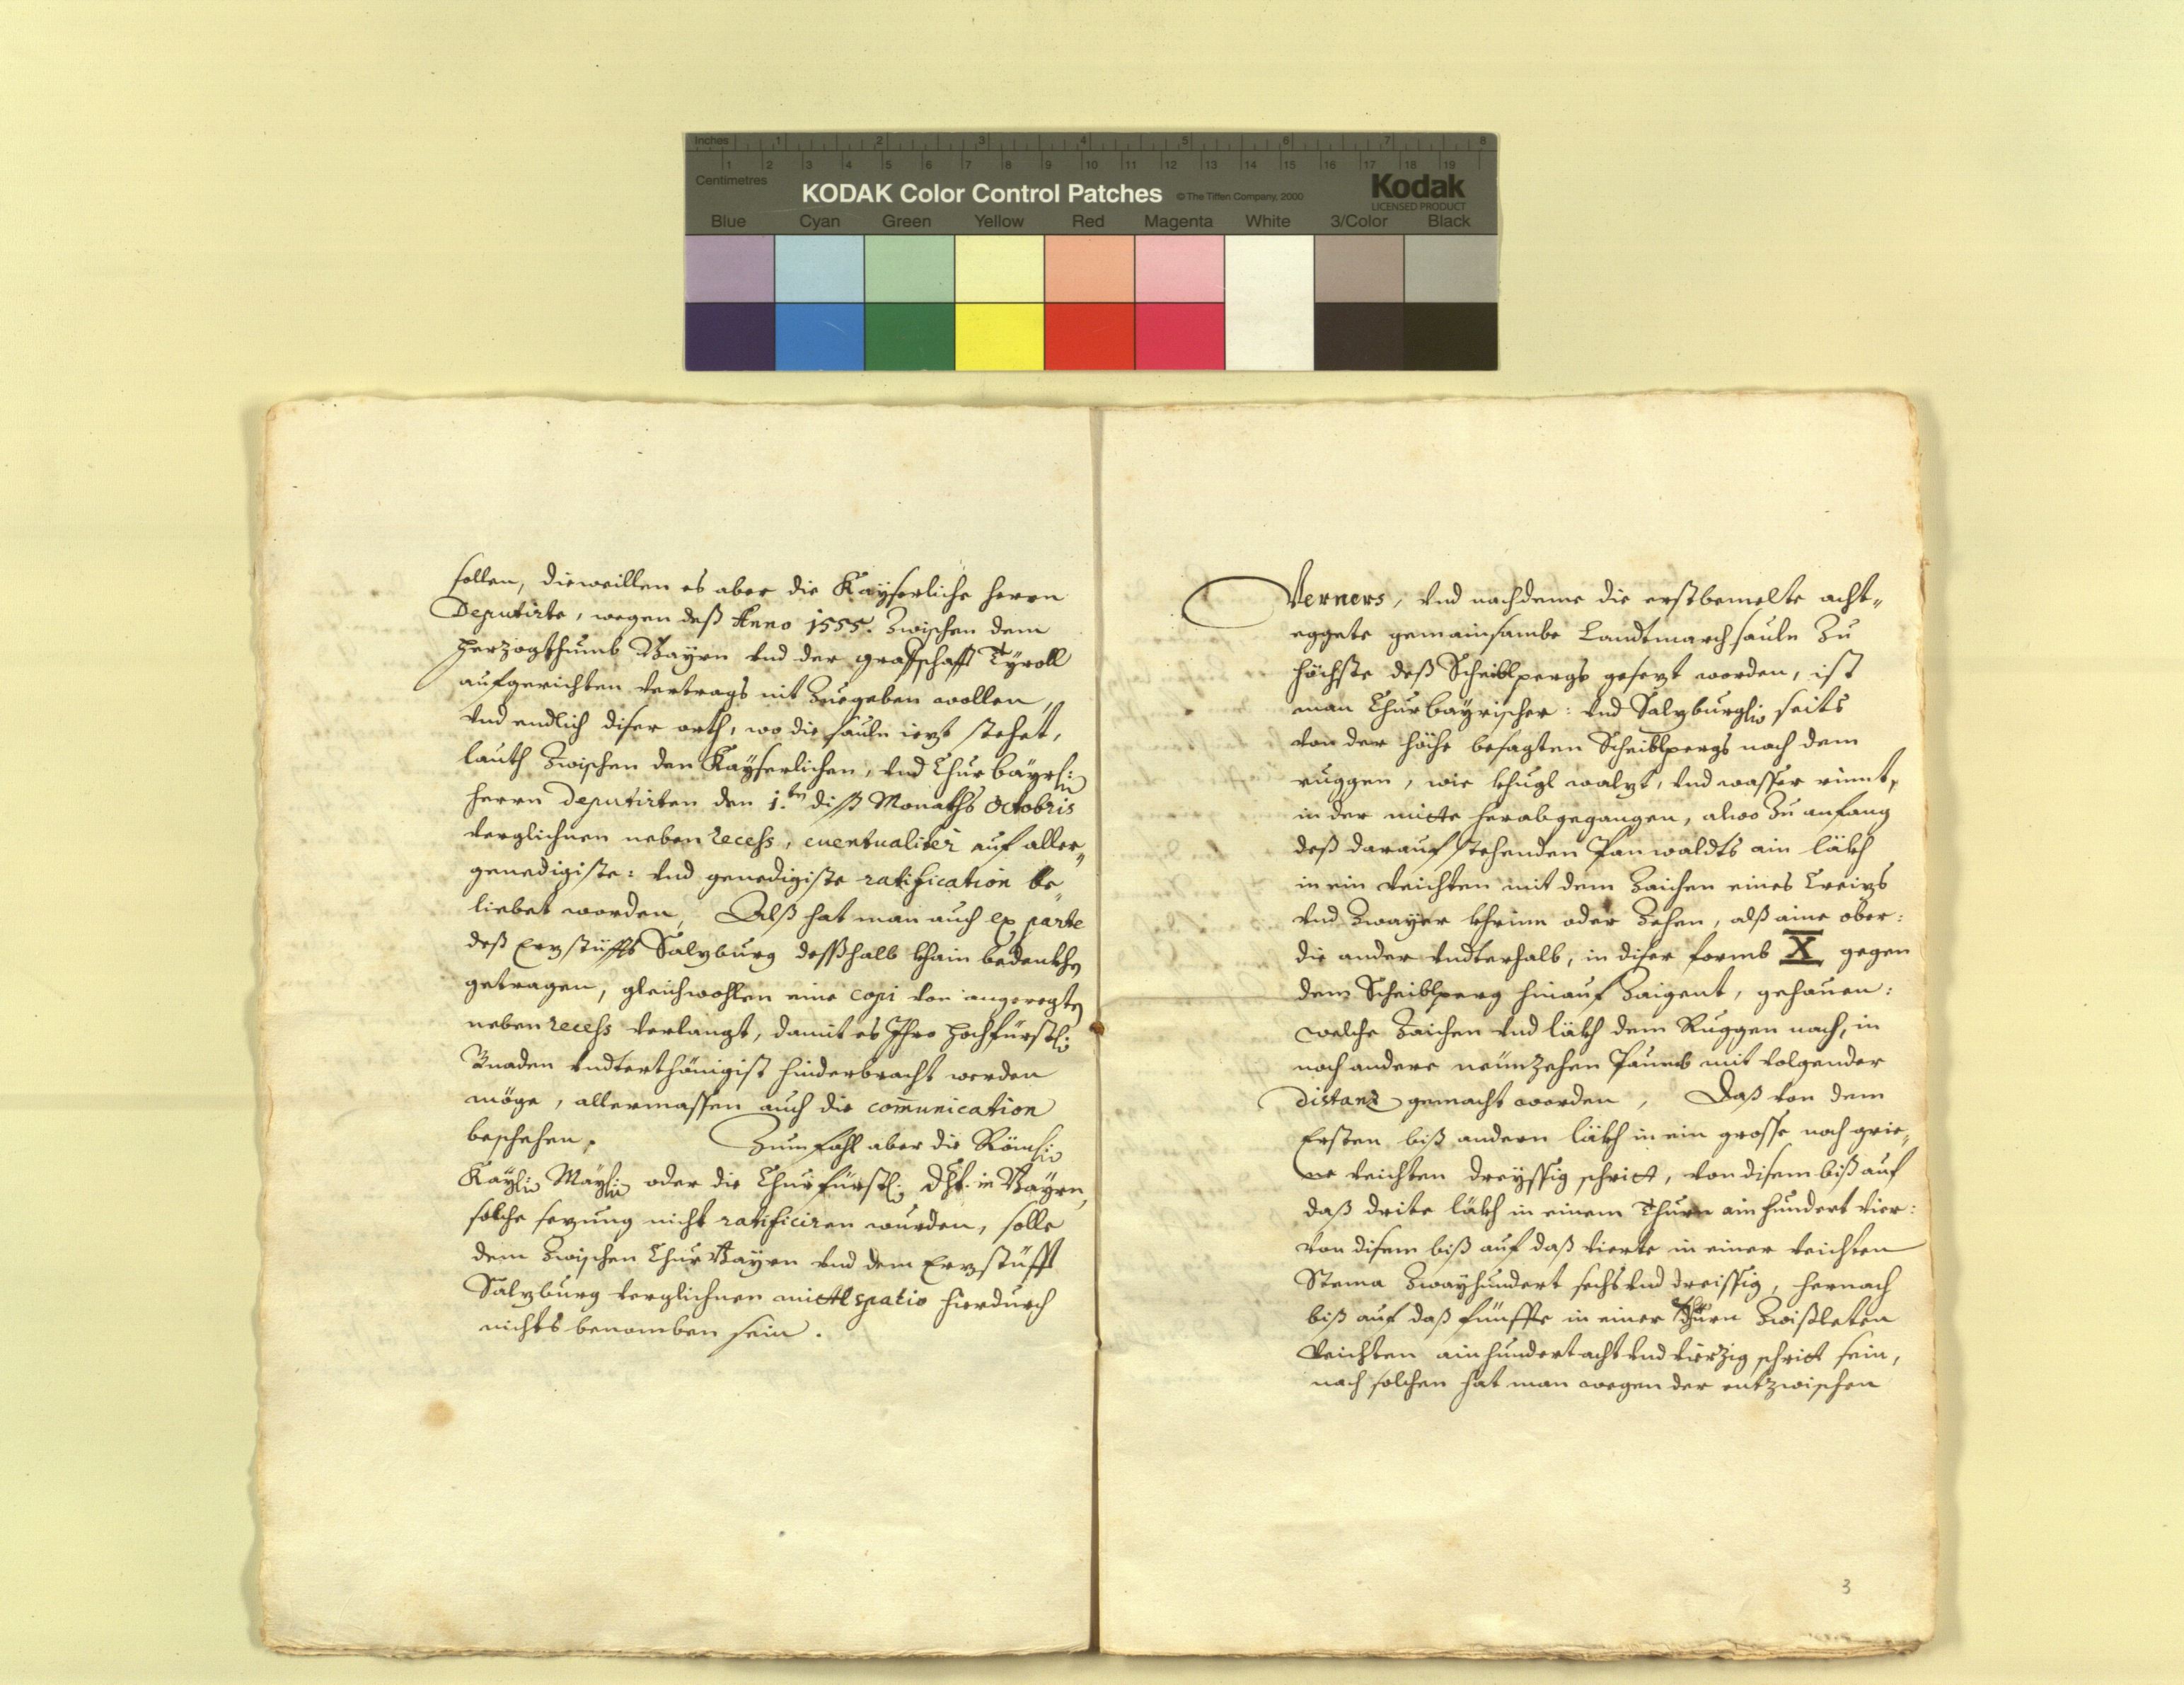 Inches 1 2 3 4 5 6 7 8
1 2 3 4 5 6 7 8 9 10 11 12 13 14 15 16 17 18 19
Centimetres
KODAK Color Control Patches © The Tiffen Company, 2000
Kodak
LICENSED PRODUCT
Blue Cyan Green Yellow Red Magenta White 3/Color Black
sollen, dieweillen es aber die Kayserliche herrn
Deputirte, wegen deß Anno 1555. zwischen dem
Herzogthumb Bayrn vnd der grafschafft Tyroll
aufgerichten vertrags nit zuegeben wollen,
vnd endlich diser orth, wo die sauln iezt stehet,
lauth zwischen den Kayserlichen, vnd Churbayrl:
herrn Deputirten den 1.ten diß Monaths Octobris
verglichnen neben recess, euentualiter auf aller„
genedigiste: vnd genedigiste ratification be„
liebet worden, Alß hat man auch ex parte
deß Erzstüffts Salzburg deßhalb khain bedenkhen
getragen, gleichwohlen eine copi von angeregten
neben recess verlangt, damit es Ihro Hochfürstl:
Gnaden vndterthänigist hinderbracht werden
möge, allermassen auch die com̄unication
beschehen, Zum fahl aber die Röml:
Kayl: Mayl: oder die Churfürstl: Dhl. in Bayrn,
solche sezung nicht ratificiren wurden, solle
dem zwischen Chur Bayrn vnd dem Erzstüfft
Salzburg verglichnen mittl spatio hierdurch
nichts benomben sein.
Verners, vnd nachdeme die erstbemelte acht„
eggete gemainsambe Landtmarchsauln zu
höchste deß Scheiblpergs gesezt worden, ist
man Churbayrischer: vnd Salzburgl: seits
von der höhe besagten Scheiblpergs nach dem
ruggen, wie khugl walzt, vnd wasser rinnt,
in der mitte herabgegangen, alwo zu anfang
deß darauf stehenden Panwaldts ain läkh
in ein veichten mit dem zaichen eines Creizs
vnd zwayer khrinn oder zehen, alß aine ober:
die ander vndterhalb, in diser formb X gegen
dem Scheiblperg hinauf zaigent, gehauen:
welche zaichen vnd läkh dem Ruggen nach, in
noch andere neünzehen Paumb mit volgender
distanz gemacht worden, Daß von dem
Ersten biß andern läkh in ein grosse noch grie„
ne veichten dreyssig schritt, von disem biß auf
daß drite läkh in einem Thurn ainhundert vier:
von disem biß auf daß vierte in einer veichten
Stema zwayhundert sechs vnd dreissig, hernach
biß auf daß fünffte in einer dürn zwißleten
veichten ainhundert acht vnd vierzig schritt sein,
nach solchen hat man wegen der entzwischen
3